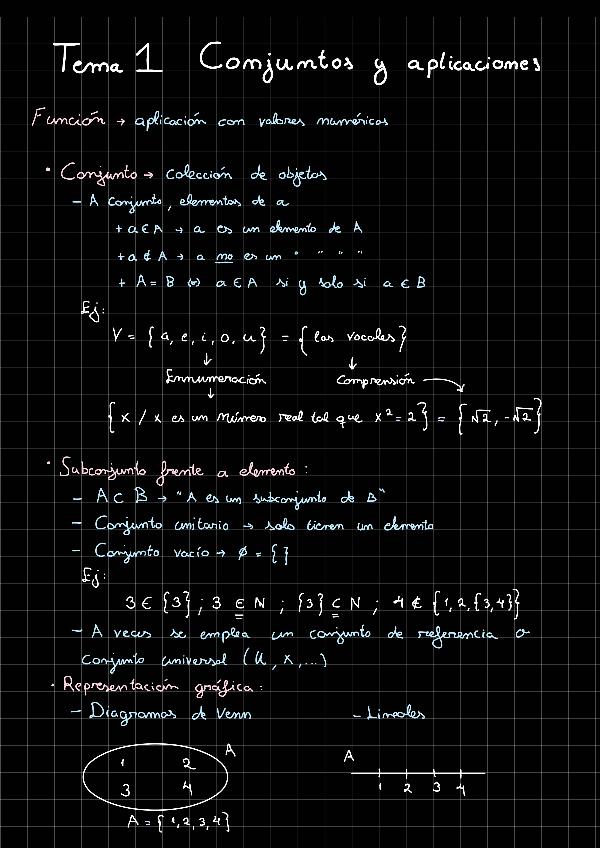 Tema 1 Conjuntos y aplicaciones
Función → aplicación con valores numéricos
· Conjunto → colección de objetos
- A conjunto, elementos de a
+ a ∈ A → a es un elemento de A
+ a ∉ A → a no es un " " " "
+ A = B ⇔ a ∈ A si y solo si a ∈ B
Ej:
V = { a, e, i, o, u } = { las vocales }
↓ ↓
Ennumeración Comprensión →
↓
{ x / x es un número real tal que x² = 2 } = { √2, -√2 }
· Subconjunto frente a elemento:
- A ⊂ B → "A es un subconjunto de B"
- Conjunto unitario → solo tienen un elemento
- Conjunto vacío → ∅ = { }
Ej:
3 ∈ {3} ; 3 ∈ N ; {3} ⊂ N ; 4 ∉ {1, 2, {3, 4}}
- A veces se emplea un conjunto de referencia o
conjunto universal (U, X, ...)
· Representación gráfica:
- Diagramas de Venn - Lineales
A
1 2
3 4
A = { 1, 2, 3, 4 }
A
1 2 3 4